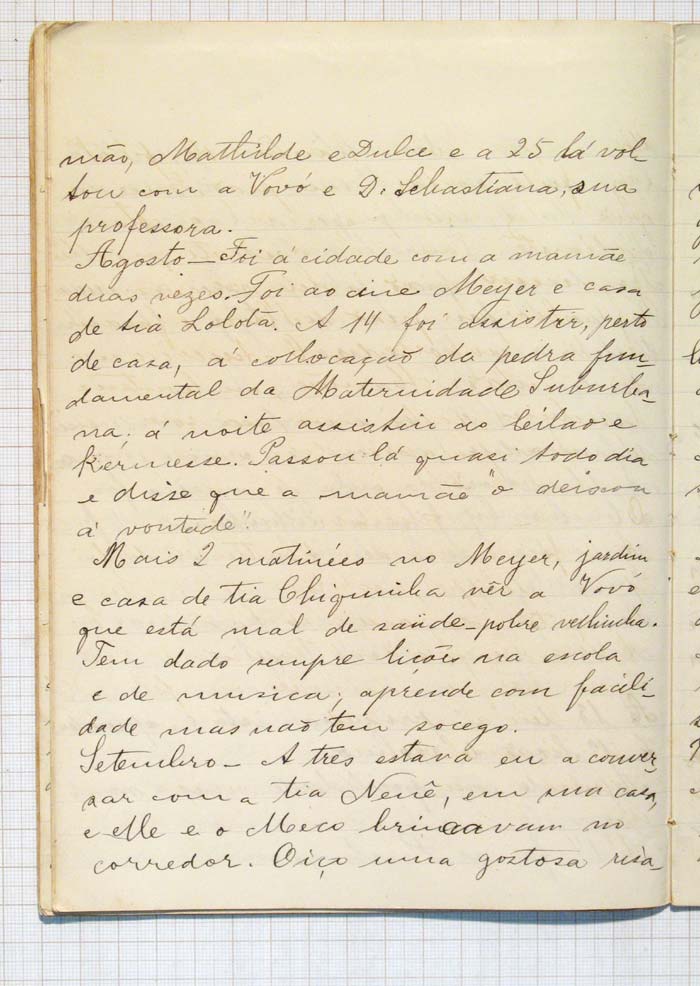 mão, Mathilde e Dulce e a 25 lá vol-
tou com a Vovó e D. Sebastiana, sua
professora.
Agosto — Foi á cidade com a mamãe
duas vezes. Foi ao cine Meyer e casa
de tia Lolota. A 14 foi assister, perto
de casa, á collocação da pedra fun-
damental da Maternidade Suburba-
na; á noite assistiu ao leilão e
kermesse. Passou lá quasi todo dia
e disse que a mamãe "o deixou
á vontade".
Mais 2 matinées no Meyer, jardim
e casa de tia Chiquinha vêr a Vovó
que está mal de saüde - pobre velhinha.
Tem dado sempre licões na escola
e de musica; aprende com facili-
dade mas não tem socego.
Setembro — A tres estava eu a conver-
sar com a tia Nenê, em sua casa,
e elle e o Meco brincavam no
corredor. Oiço uma gostosa risa-